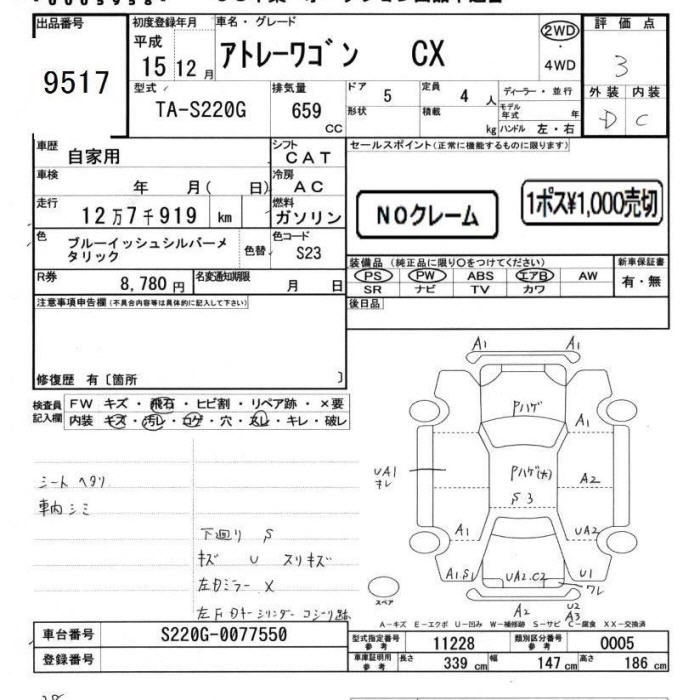 出品番号
9517
初度登録年月
平成
15 12 月
車名・グレード
アトレーワゴン CX
2WD
・
4WD
評価点
3
外装 内装
D C
型式
TA-S220G
排気量
659
CC
ドア 5
形状
定員 4 人
積載 kg
ディーラー・並行
モデル年式 年
ハンドル 左・右
車歴
自家用
シフト
CAT
車検
年 月( 日)
冷房
AC
走行
12万7千919 km
燃料
ガソリン
色
ブルーイッシュシルバーメタリック
色替
色コード
S23
R券
8,780 円
名変通知期限
月 日
セールスポイント(正常に機能するものに限ります)
NOクレーム
1ポス¥1,000売切
装備品 (純正品に限り〇をつけてください)
PS PW ABS エアB AW
SR ナビ TV カワ
新車保証書
有・無
後日品
注意事項申告欄(不具合内容等は具体的に記入して下さい)
修復歴 有〔箇所 〕
検査員記入欄
FW キズ・飛石・ヒビ割・リペア跡・×要
内装 キズ・汚レ・コゲ・穴・スレ・キレ・破レ
シート ヘタリ
車内 シミ
下廻り S
キズ U スリキズ
左Dミラー X
左F Dキーシリンダー コジリ跡
A1
A1
Pハゲ
A1
UA1
キレ
Pハゲ(大)
S3
A2
A1
UA2
A1.S1
UA2.C2
U1
ワレ
A2
U2
A3
スペア
A-キズ E-エクボ U-凹み W-補修跡 S-サビ C-腐食 XX-交換済
車台番号
S220G-0077550
登録番号
型式指定番号
参考
11228
類別区分番号
参考
0005
車庫証明用
参考
長さ 339 cm
幅 147 cm
高さ 186 cm